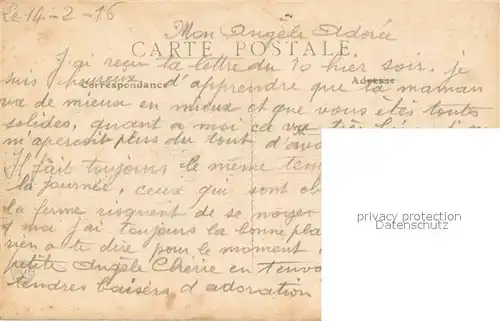 Le 14-2-16
Mon Angèle Adorée
CARTE POSTALE
J'ai reçu ta lettre du 10 hier soir. je
Correspondance
Adresse
suis heureux d'apprendre que ta maman
va de mieux en mieux et que vous êtes toutes
solides, quant a moi ça va très
m'aperçoit plus du tout d'avo
Il fait toujours le même tem
la journée, ceux qui sont
la ferme risquent de se noyer
moi j'ai toujours la bonne pla
rien a te dire pour le moment
petite Angèle Chérie en t'envo
tendres baisers d'adoration
privacy protection
Datenschutz